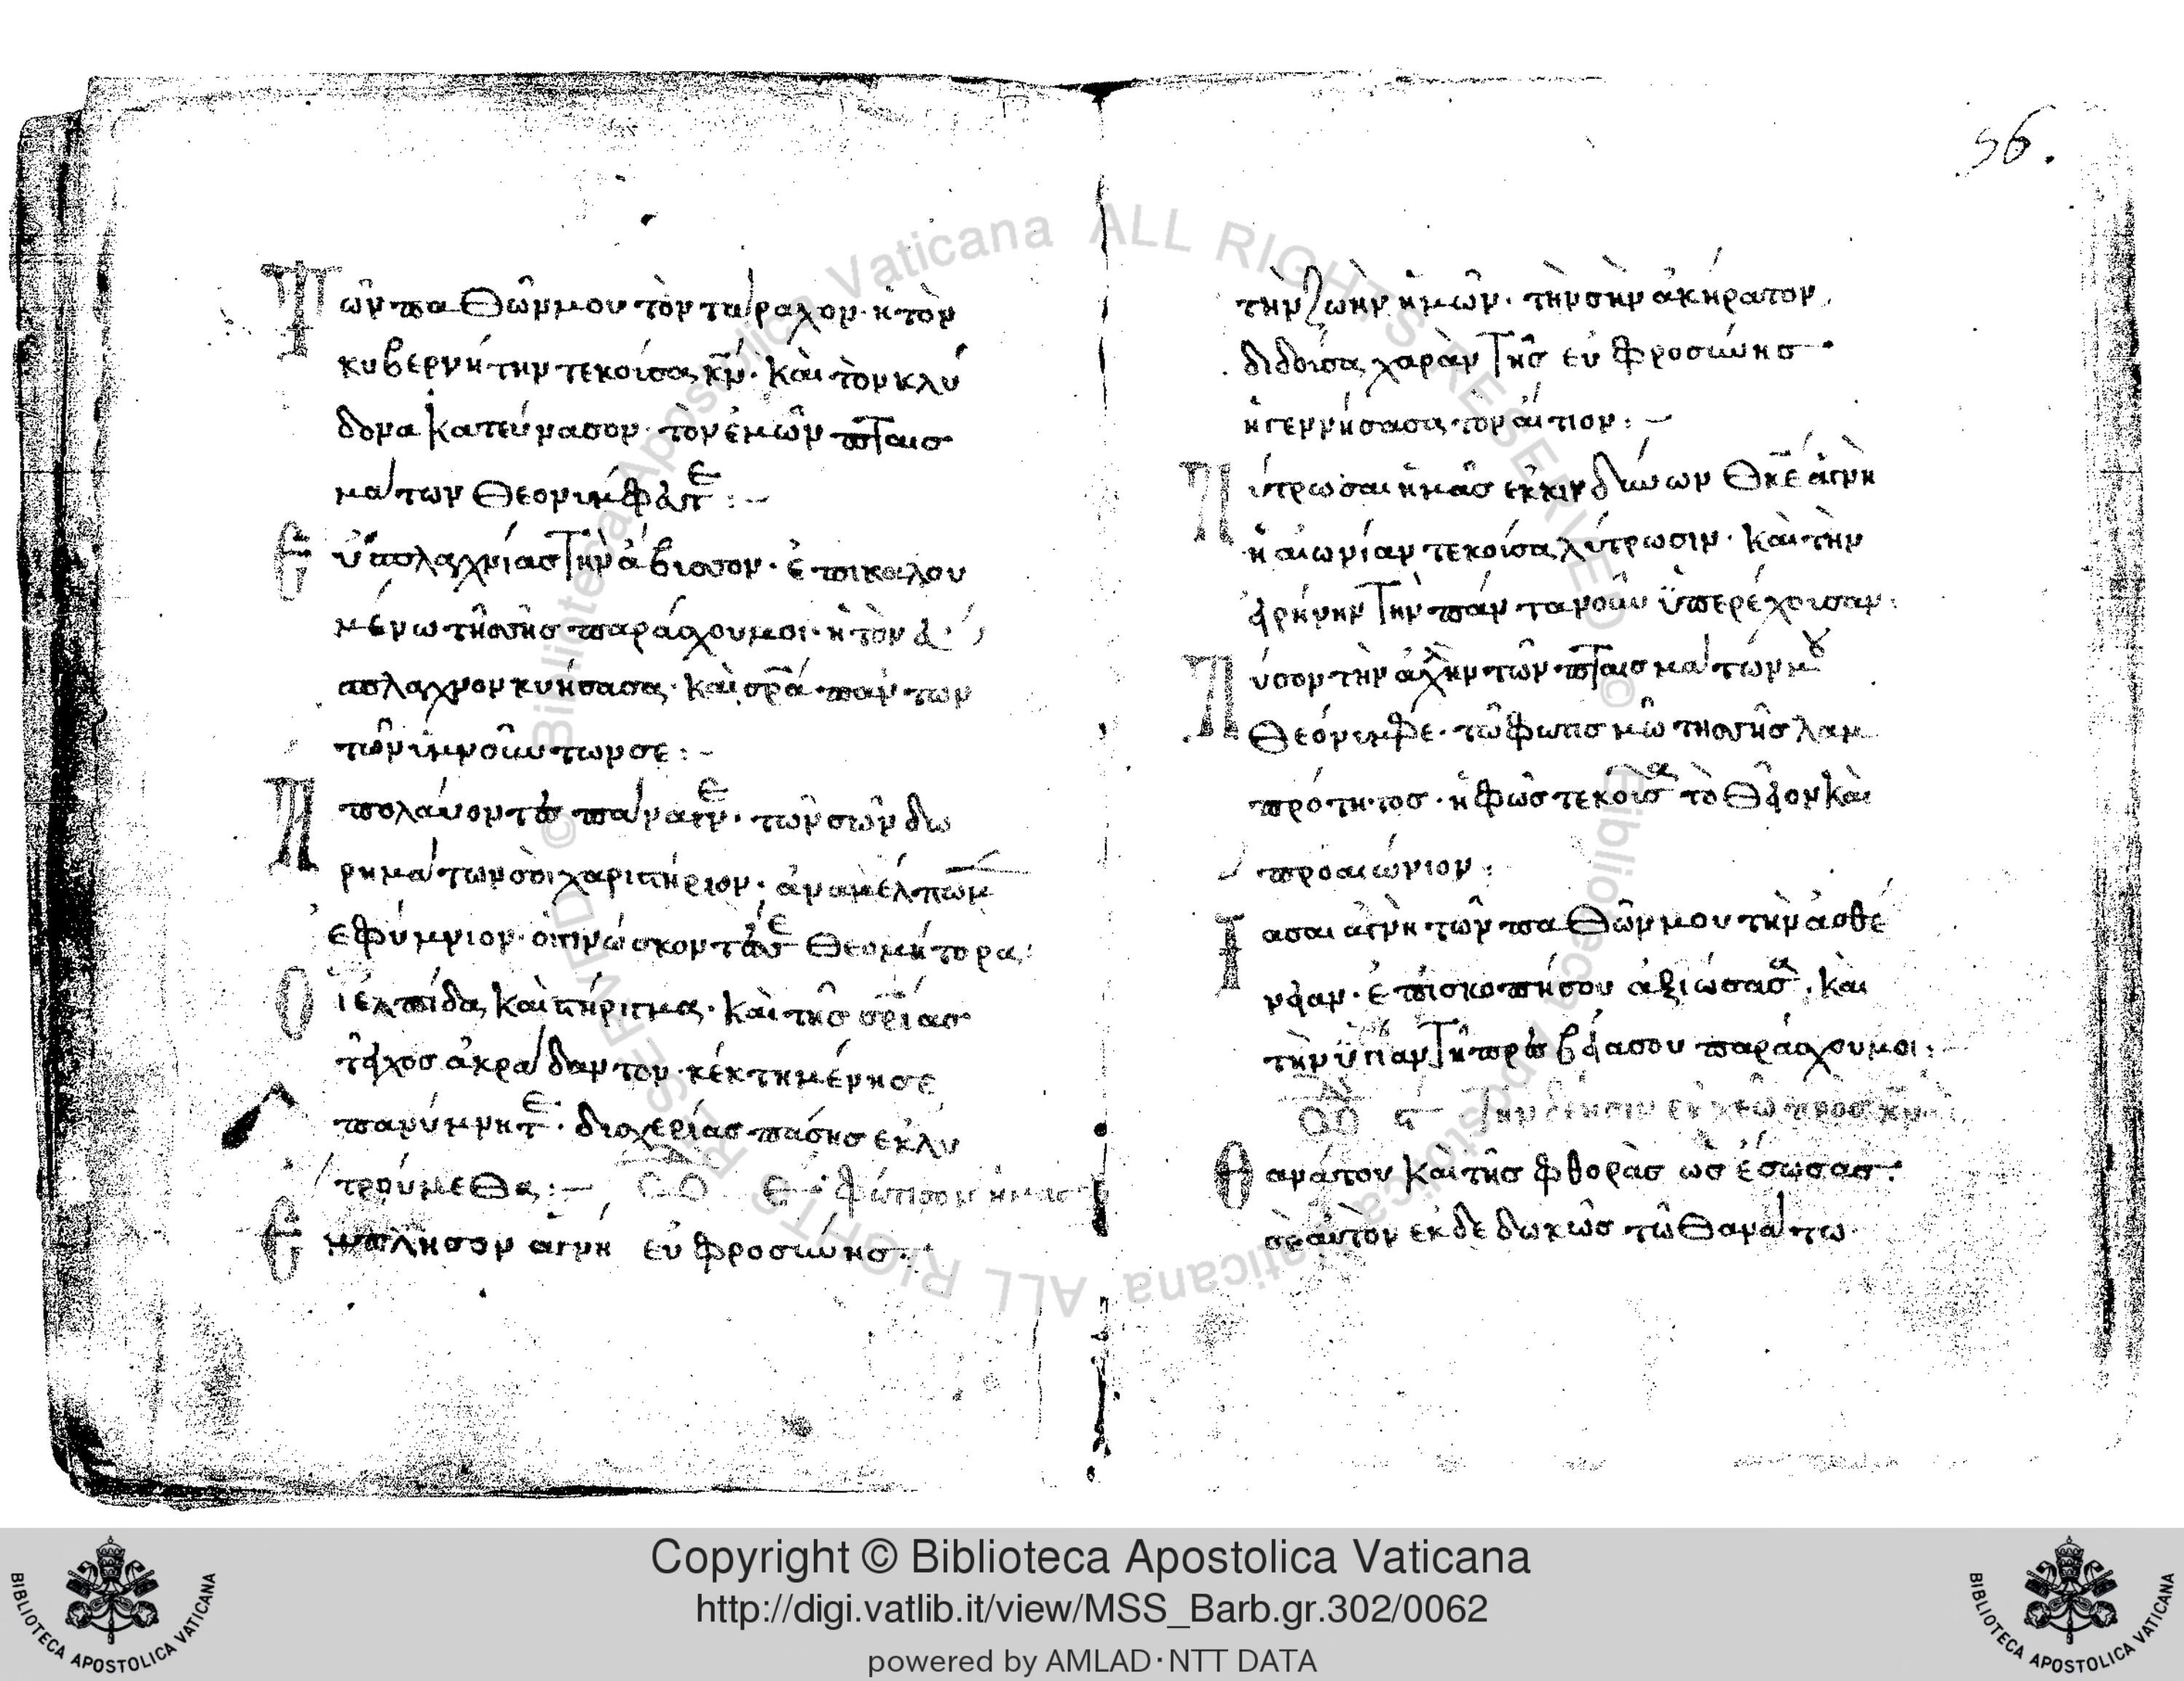 Τῶν παθῶν μου τὸν τάραχον· ἡ τὸν
κυβερνήτην τεκοῦσα κν· καὶ τὸν κλύ
δωνα κατεύνασον· τὸν ἐμῶν πταισ
μάτων θεονύμφευτε:-
Εὐσπλαχνίας τὴν ἄβυσσον· ἐπικαλου
μένω τῆς σῆς παράσχου μοι· ἡ τὸν εὔ
σπλαχνον κυήσασα· καὶ σρα πάντων
τῶν ὑμνούντων σε:-
Ἀπολαύοντες πάναγνε· τῶν σῶν δω
ρημάτων σοι χαριστήριον· ἀναμέλπωμ
ἐφύμνιον· οἱ γινώσκοντές σε θεομήτορα:
Οἱ ἐλπίδα καὶ στήριγμα· καὶ τῆς σριας
τεῖχος ἀκράδαντον· κεκτημένη σε
πανύμνητε· δυσχερίας πάσης ἐκλυ
τρούμεθα:- ᾠδ ε φώτισον ἡμας
Ἔμπλησον ἁγνή εὐφροσύνης·
56.
τὴν ζωὴν ἡμῶν· τὴν σὴν ἀκήρατον
διδοῦσα χαρὰν τῆς εὐφροσύνης
ἡ γεννήσασα τὸν αἴτιον:-
Λύτρωσαι ἡμᾶς ἐκ κινδύνων θκε ἁγνή
ἡ αἰωνίαν τεκοῦσα λύτρωσιν· καὶ τὴν
εἰρήνην τὴν πάντα νοῦν ὑπερέχουσαν:
Λύσον τὴν ἀχλὴν τῶν πταισμάτων μου
θεόνυμφε· τῶ φωτισμῶ τῆς σῆς λαμ
πρότητος· ἡ φῶς τεκοῦσα τὸ θεῖον καὶ
προαιώνιον:
Ἴασαι ἁγνὴ τῶν παθῶν μου τὴν ἀσθέ
νειαν· ἐπισκοπῆς σου ἀξιώσασα· καὶ
τὴν ὑγίαν τῆ πρεσβεία σου παράσχου μοι:
ᾠδ ϛ Τὴν δέησιν ἐκχεῶ πρὸς κν
Θανάτου καὶ τῆς φθορᾶς ὡς ἔσωσας·
σεαυτὸν ἐκδεδωκὼς τῶ θανάτω
© Biblioteca Apostolica Vaticana ALL RIGHTS RESERVED
Copyright © Biblioteca Apostolica Vaticana
http://digi.vatlib.it/view/MSS_Barb.gr.302/0062
powered by AMLAD·NTT DATA
BIBLIOTECA APOSTOLICA VATICANA
BIBLIOTECA APOSTOLICA VATICANA